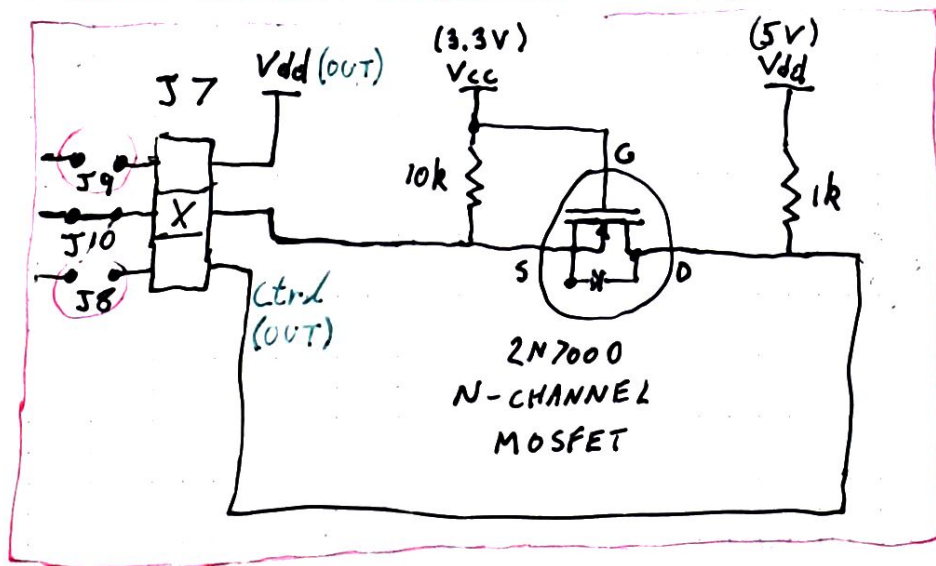 J7
Vdd (OUT)
(3.3V)
Vcc
(5V)
Vdd
J9
X
J10
J8
10k
G
S
D
1k
Ctrl
(OUT)
2N7000
N-CHANNEL
MOSFET